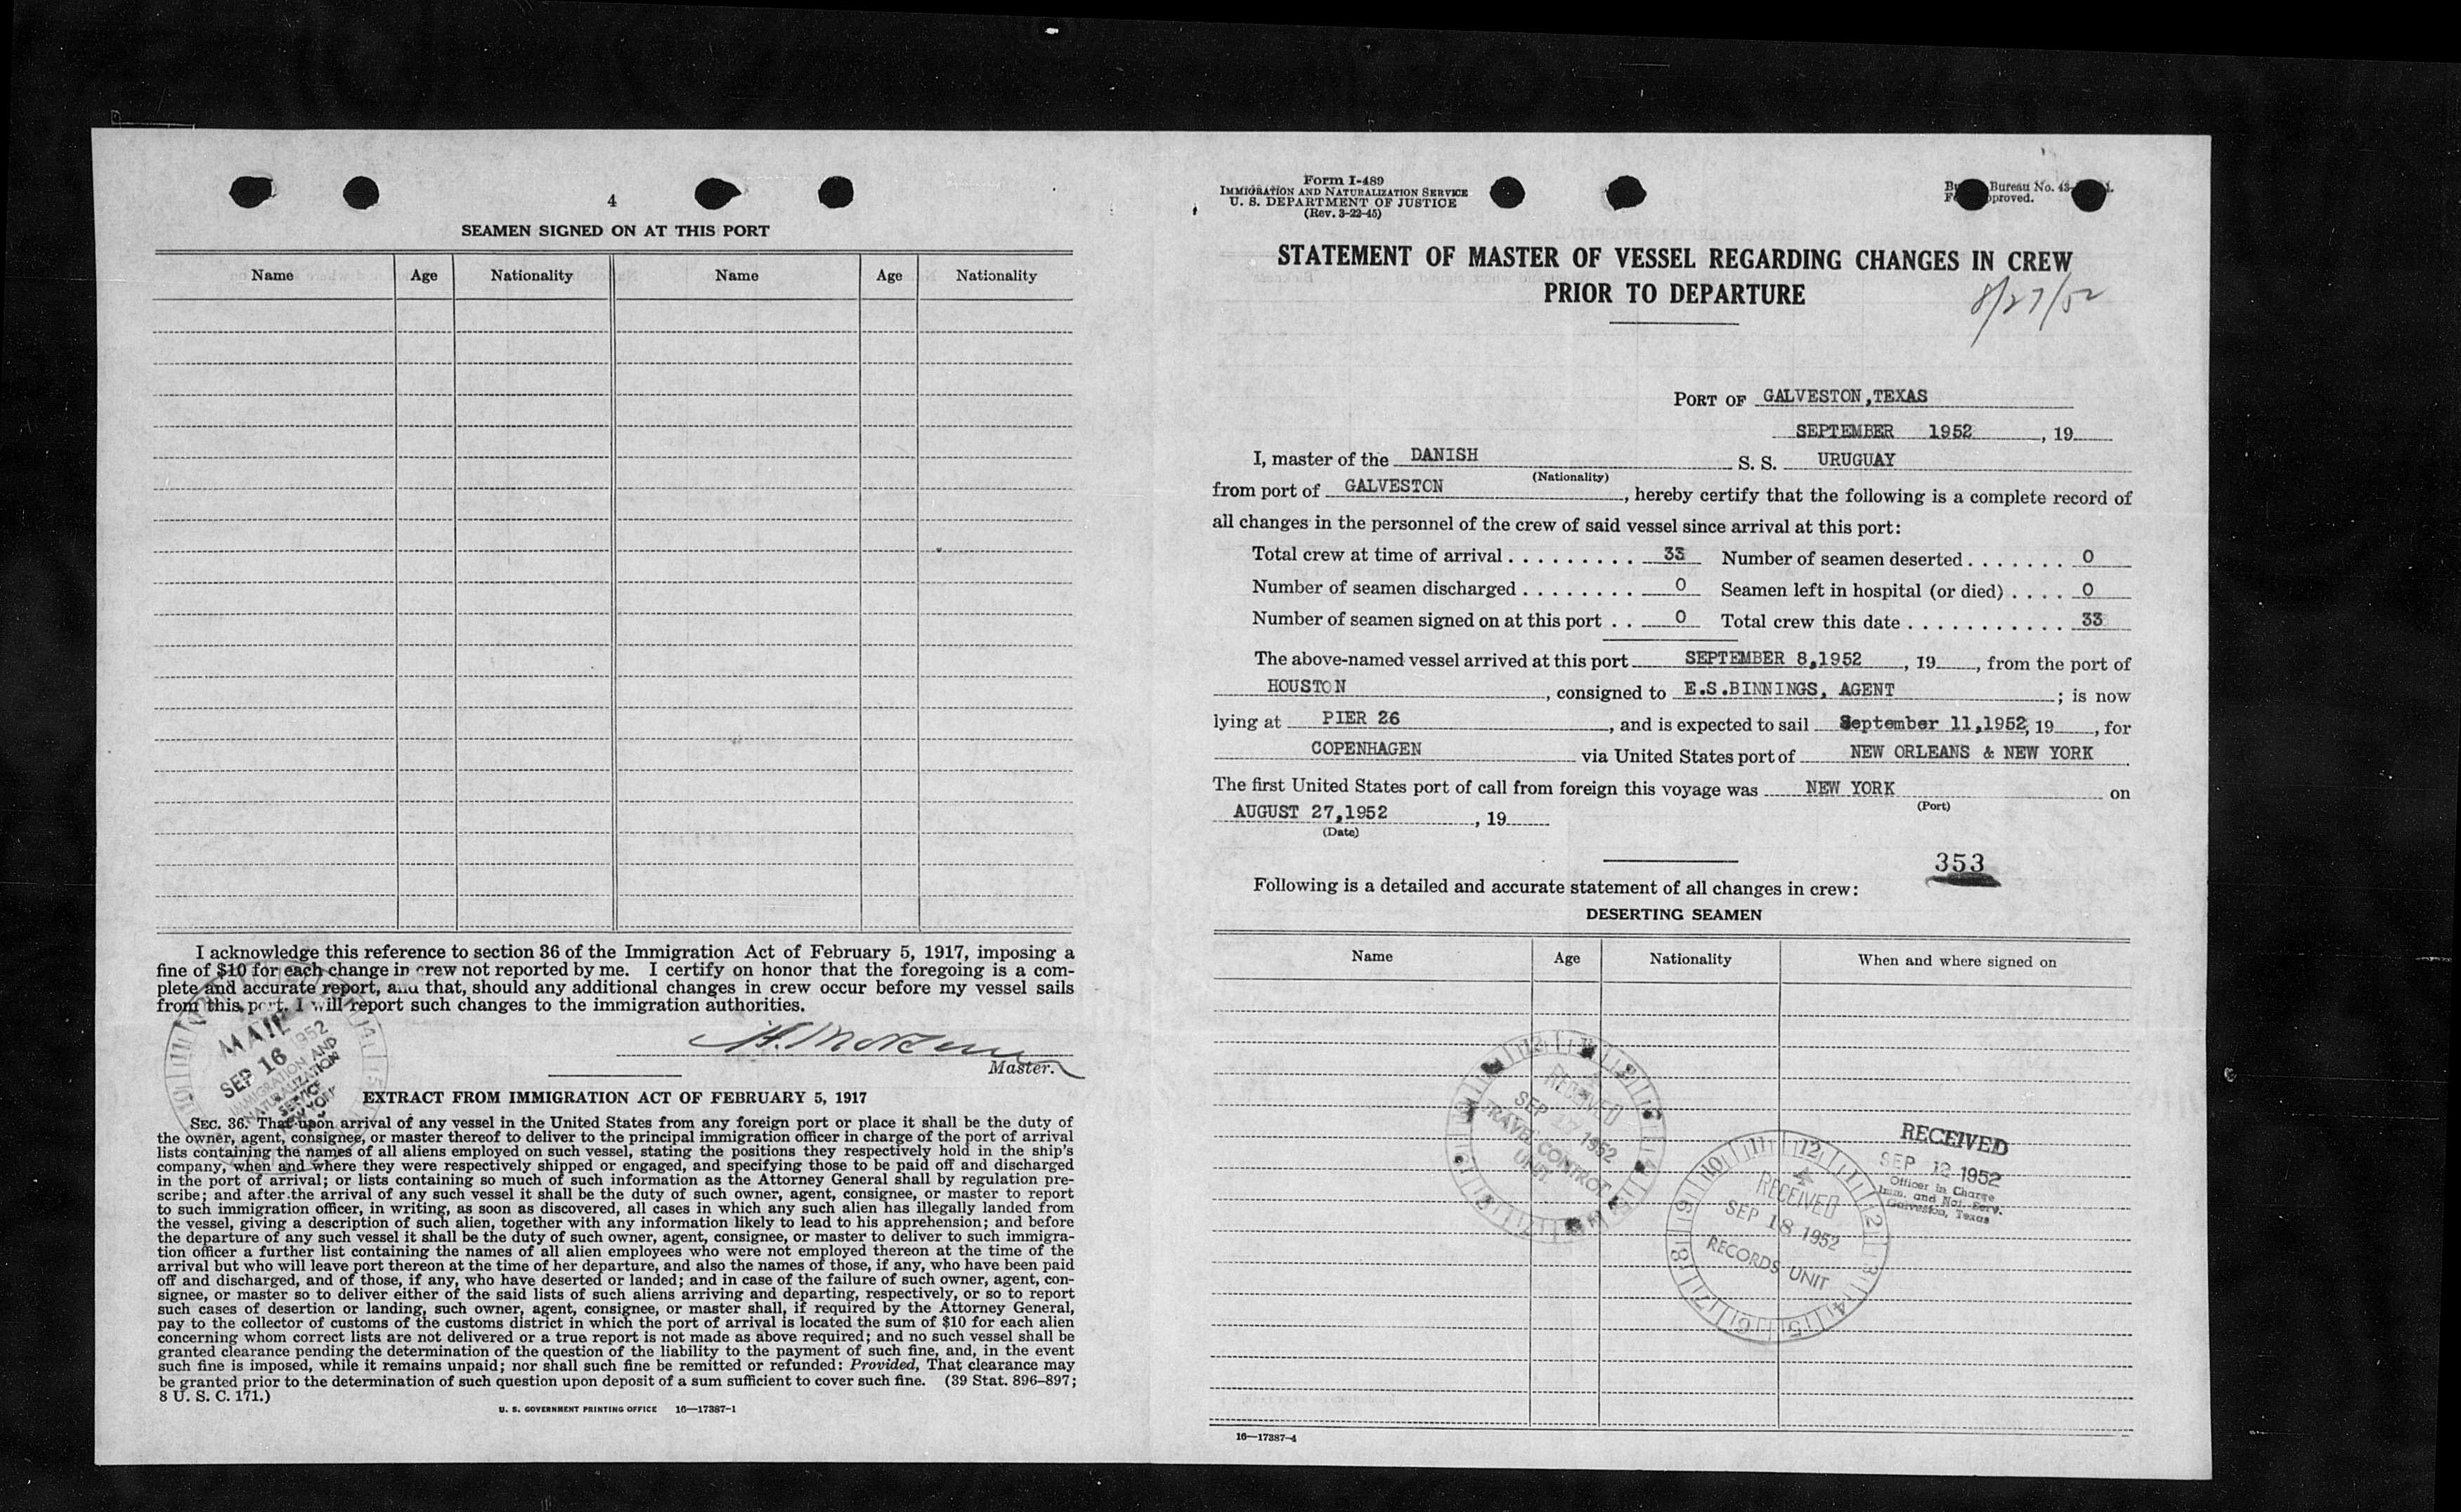 4
SEAMEN SIGNED ON AT THIS PORT
Name Age Nationality Name Age Nationality
I acknowledge this reference to section 36 of the Immigration Act of February 5, 1917, imposing a
fine of $10 for each change in crew not reported by me. I certify on honor that the foregoing is a com-
plete and accurate report, and that, should any additional changes in crew occur before my vessel sails
from this port. I will report such changes to the immigration authorities.
Master.
MAIL
SEP 16 1952
IMMIGRATION AND
NATURALIZATION
SERVICE
NEW YORK
EXTRACT FROM IMMIGRATION ACT OF FEBRUARY 5, 1917
SEC. 36. That upon arrival of any vessel in the United States from any foreign port or place it shall be the duty of
the owner, agent, consignee, or master thereof to deliver to the principal immigration officer in charge of the port of arrival
lists containing the names of all aliens employed on such vessel, stating the positions they respectively hold in the ship's
company, when and where they were respectively shipped or engaged, and specifying those to be paid off and discharged
in the port of arrival; or lists containing so much of such information as the Attorney General shall by regulation pre-
scribe; and after the arrival of any such vessel it shall be the duty of such owner, agent, consignee, or master to report
to such immigration officer, in writing, as soon as discovered, all cases in which any such alien has illegally landed from
the vessel, giving a description of such alien, together with any information likely to lead to his apprehension; and before
the departure of any such vessel it shall be the duty of such owner, agent, consignee, or master to deliver to such immigra-
tion officer a further list containing the names of all alien employees who were not employed thereon at the time of the
arrival but who will leave port thereon at the time of her departure, and also the names of those, if any, who have been paid
off and discharged, and of those, if any, who have deserted or landed; and in case of the failure of such owner, agent, con-
signee, or master so to deliver either of the said lists of such aliens arriving and departing, respectively, or so to report
such cases of desertion or landing, such owner, agent, consignee, or master shall, if required by the Attorney General,
pay to the collector of customs of the customs district in which the port of arrival is located the sum of $10 for each alien
concerning whom correct lists are not delivered or a true report is not made as above required; and no such vessel shall be
granted clearance pending the determination of the question of the liability to the payment of such fine, and, in the event
such fine is imposed, while it remains unpaid; nor shall such fine be remitted or refunded: Provided, That clearance may
be granted prior to the determination of such question upon deposit of a sum sufficient to cover such fine. (39 Stat. 896–897;
8 U. S. C. 171.)
U. S. GOVERNMENT PRINTING OFFICE 16—17387-1
Form I-489
IMMIGRATION AND NATURALIZATION SERVICE
U. S. DEPARTMENT OF JUSTICE
(Rev. 3-22-45)
Bureau No. 43-
STATEMENT OF MASTER OF VESSEL REGARDING CHANGES IN CREW
PRIOR TO DEPARTURE
8/27/52
PORT OF GALVESTON,TEXAS
SEPTEMBER 1952, 19
I, master of the DANISH S. S. URUGUAY
(Nationality)
from port of GALVESTON, hereby certify that the following is a complete record of
all changes in the personnel of the crew of said vessel since arrival at this port:
Total crew at time of arrival . . . . . . . . . 33 Number of seamen deserted . . . . . . . 0
Number of seamen discharged . . . . . . . . 0 Seamen left in hospital (or died) . . . . 0
Number of seamen signed on at this port . . 0 Total crew this date . . . . . . . . . . . . 33
The above-named vessel arrived at this port SEPTEMBER 8,1952, 19, from the port of
HOUSTON, consigned to E.S.BINNINGS, AGENT; is now
lying at PIER 26, and is expected to sail September 11,1952, 19, for
COPENHAGEN via United States port of NEW ORLEANS & NEW YORK
The first United States port of call from foreign this voyage was NEW YORK on
(Port)
AUGUST 27,1952, 19
(Date)
353
Following is a detailed and accurate statement of all changes in crew:
DESERTING SEAMEN
Name Age Nationality When and where signed on
RECEIVED
SEP 17 1952
TRAVEL CONTROL
UNIT
RECEIVED
SEP 18 1952
RECORDS UNIT
RECEIVED
SEP 12 1952
Officer in Charge
Imm. and Nat. Serv.
Galveston, Texas
16—17387-4